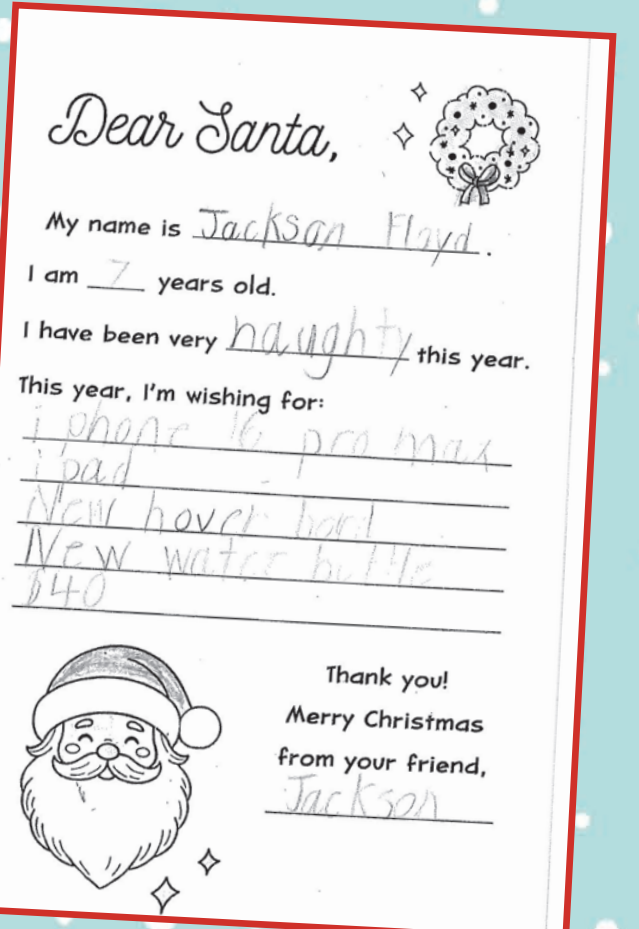 Dear Santa,
My name is Jackson Floyd.
I am 7 years old.
I have been very naughty this year.
This year, I'm wishing for:
i phone 16 pro max
ipad
New hover bord
New water bottle
$40
Thank you!
Merry Christmas
from your friend,
Jackson